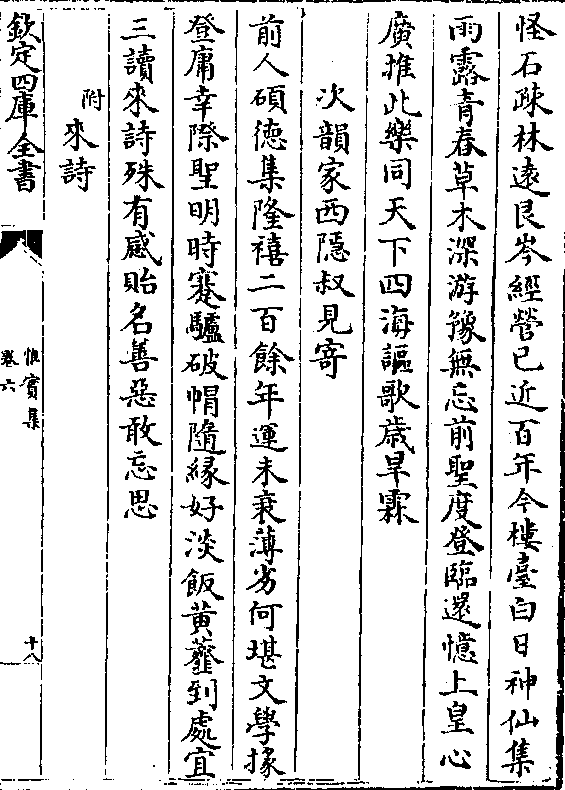 怪石疎林遠艮岑經營已近百年今樓臺白日神仙集
雨露青春草木深游豫無忘前聖度登臨還憶上皇心
廣推此樂同天下四海謳歌歳旱霖
次韻家西隱叔見寄
前人碩徳集隆禧二百餘年運未衰薄劣何堪文學掾
登庸幸際聖明時蹇驢破帽隨緣好淡飯黄虀到處宜
三讀來詩殊有感貽名善惡敢忘思
附來詩
欽定四庫全書
惟實集
卷六
十八